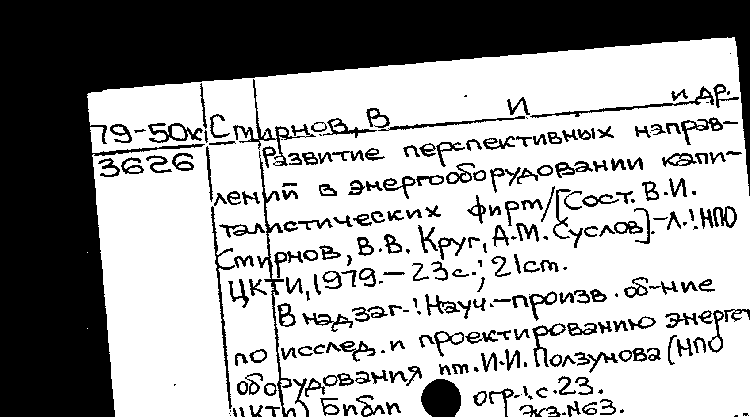 79-50к Смирнов, В И и др.
3626 Развитие перспективных направ-
лений в энергооборудовании капи-
талистических фирм/[Сост. В.И.
Смирнов, В.В. Круг, А.М. Суслов].-Л.: НПО
ЦКТИ, 1979.- 23с.; 21см.
В надзаг.: Науч.-произв. об-ние
по исслед. и проектированию энергет
оборудования им. И.И. Ползунова (НПО
ЦКТИ) Библ огр.: с.23.
Экз. №63.